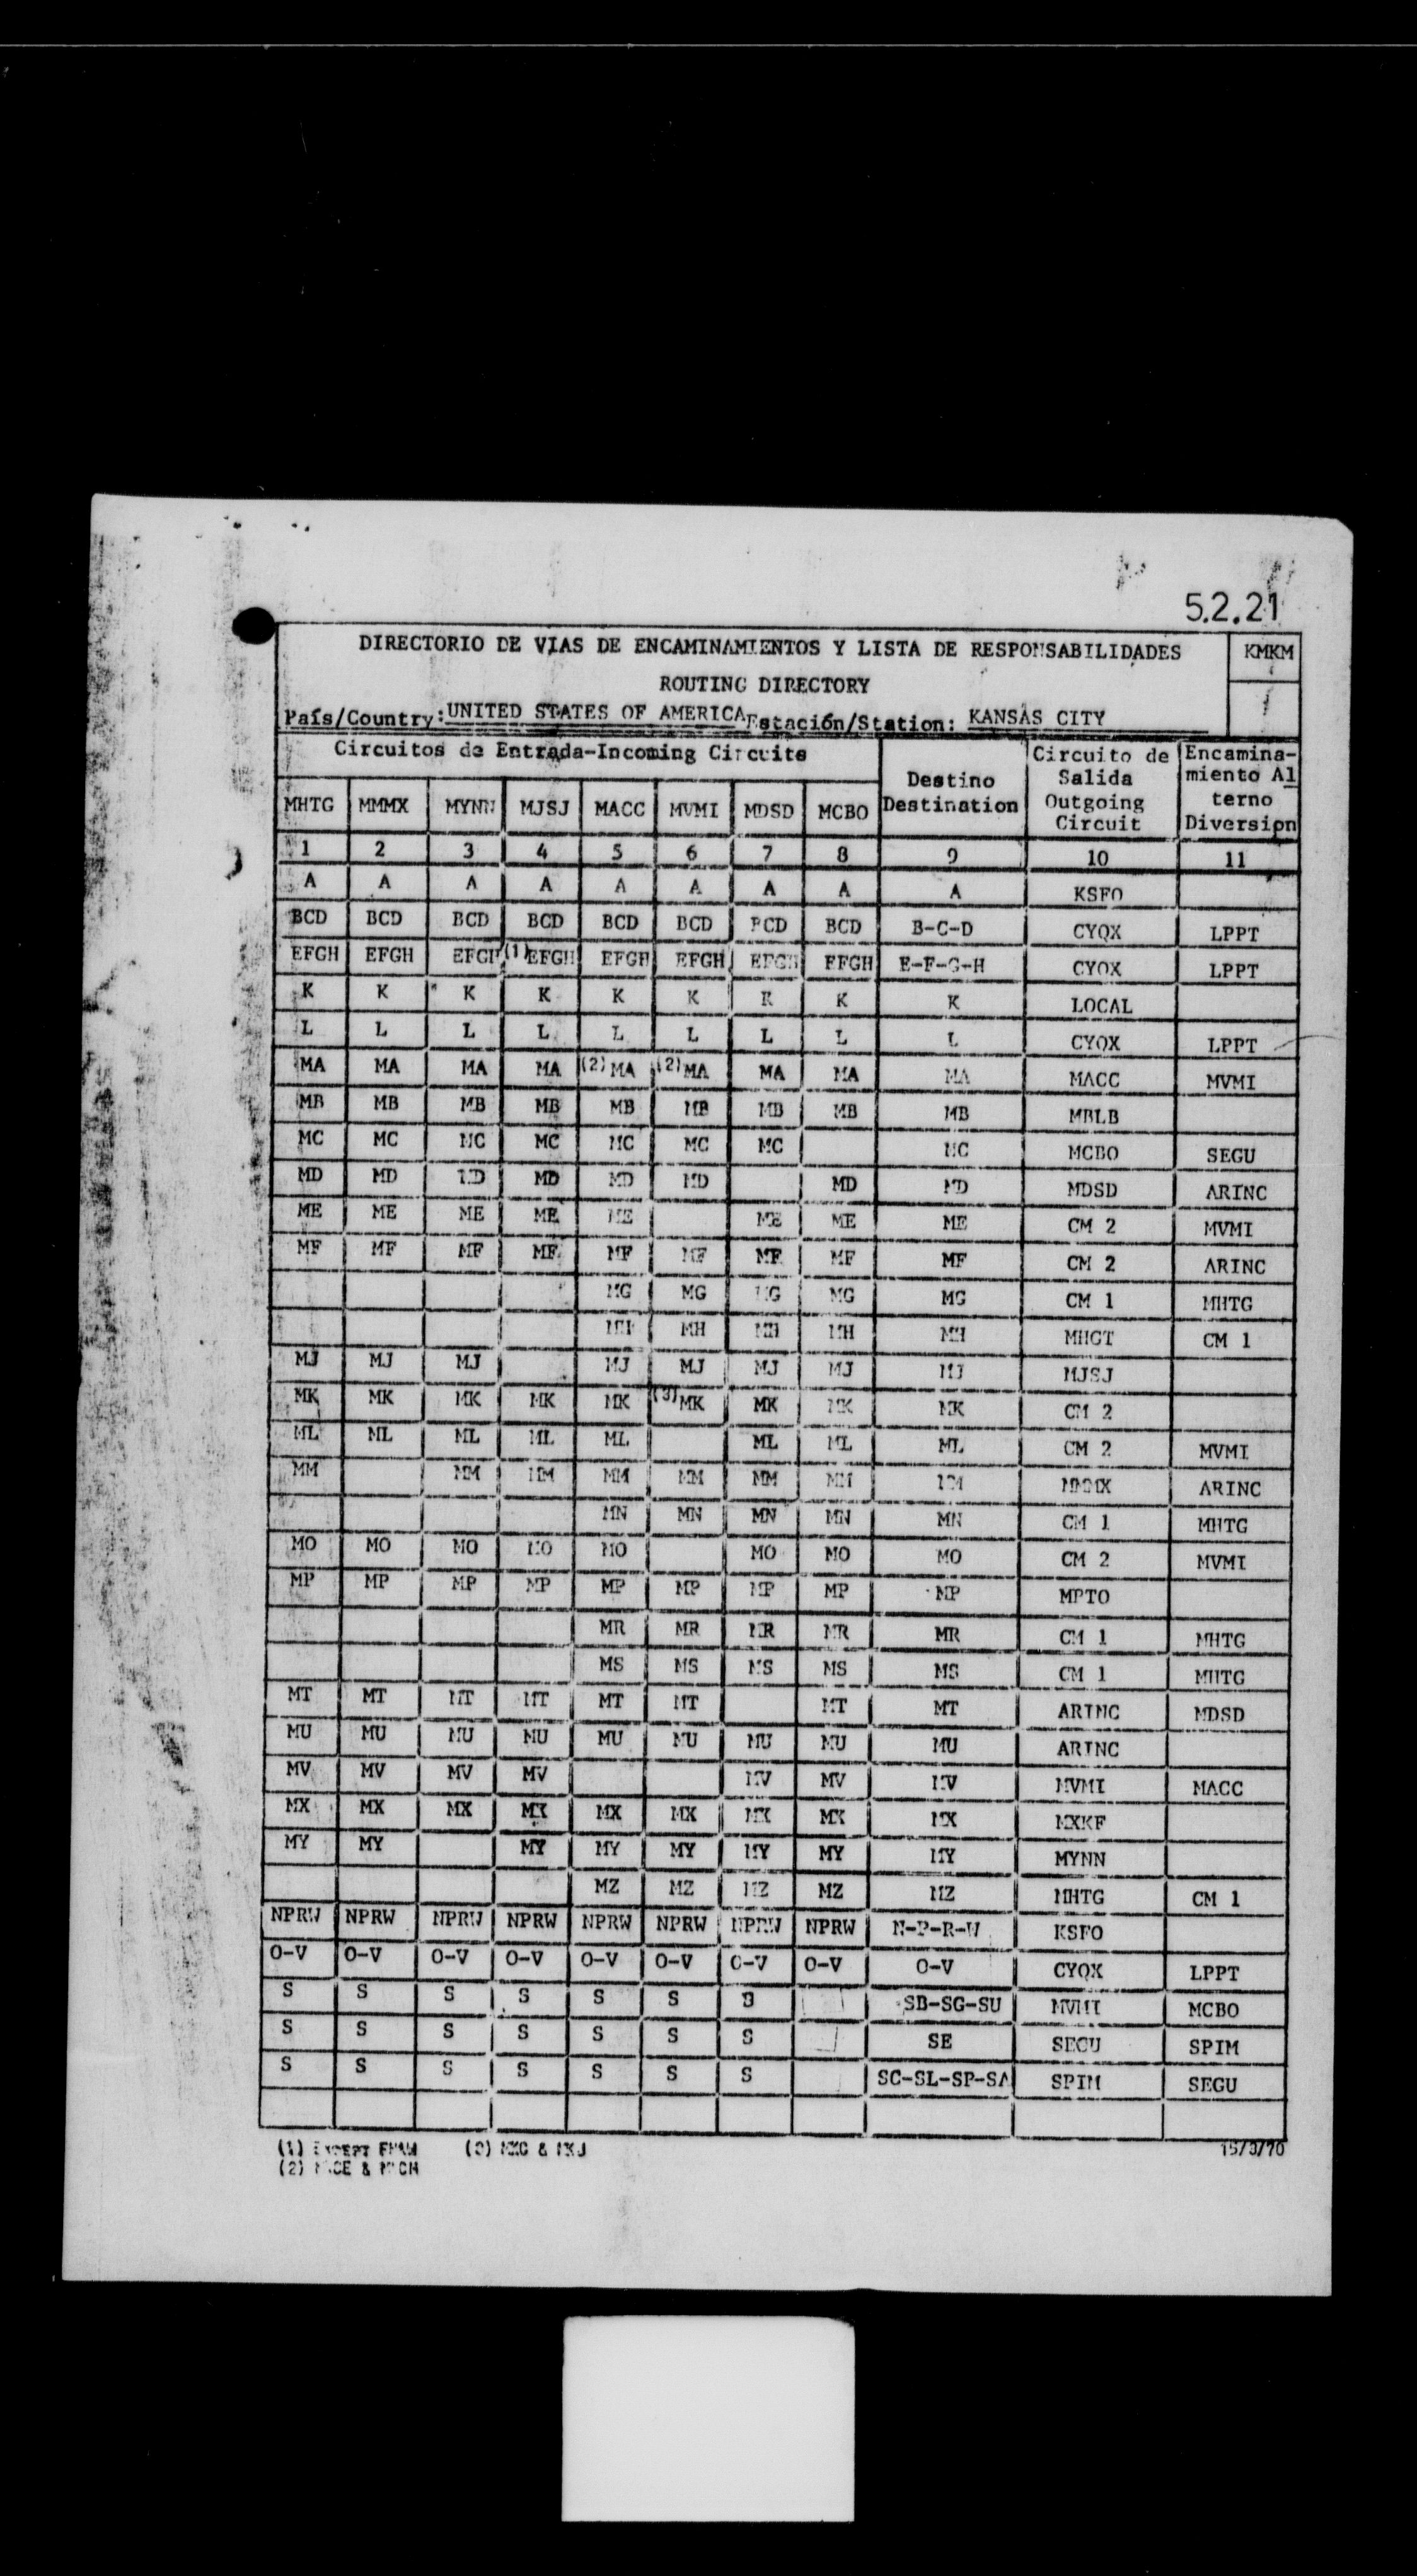 5.2.21
DIRECTORIO DE VIAS DE ENCAMINAMIENTOS Y LISTA DE RESPONSABILIDADES KMKM
ROUTING DIRECTORY
País/Country: UNITED STATES OF AMERICA Estación/Station: KANSAS CITY
Circuitos de Entrada-Incoming Circuits
Destino
Destination
Circuito de
Salida
Outgoing
Circuit
Encamina-
miento Al
terno
Diversion
MHTG MMMX MYNN MJSJ MACC MVMI MDSD MCBO
1 2 3 4 5 6 7 8 9 10 11
A A A A A A A A A KSFO
BCD BCD BCD BCD BCD BCD BCD BCD B-C-D CYQX LPPT
EFGH EFGH EFGH (1) EFGH EFGH EFGH EFGH EFGH E-F-G-H CYQX LPPT
K K K K K K K K K LOCAL
L L L L L L L L L CYQX LPPT
MA MA MA MA (2) MA (2) MA MA MA MA MACC MVMI
MB MB MB MB MB MB MB MB MB MBLB
MC MC MC MC MC MC MC MC MCBO SEGU
MD MD MD MD MD MD MD MD MDSD ARINC
ME ME ME ME ME ME ME ME CM 2 MVMI
MF MF MF MF MF MF MF MF MF CM 2 ARINC
MG MG MG MG MG CM 1 MHTG
MH MH MH MH MH MHGT CM 1
MJ MJ MJ MJ MJ MJ MJ MJ MJSJ
MK MK MK MK MK (3) MK MK MK MK CM 2
ML ML ML ML ML ML ML ML CM 2 MVMI
MM MM MM MM MM MM MM MM MMMX ARINC
MN MN MN MN MN CM 1 MHTG
MO MO MO MO MO MO MO MO CM 2 MVMI
MP MP MP MP MP MP MP MP MP MPTO
MR MR MR MR MR CM 1 MHTG
MS MS MS MS MS CM 1 MHTG
MT MT MT MT MT MT MT MT ARINC MDSD
MU MU MU MU MU MU MU MU MU ARINC
MV MV MV MV MV MV MV MVMI MACC
MX MX MX MX MX MX MX MX MX MXKF
MY MY MY MY MY MY MY MY MYNN
MZ MZ MZ MZ MZ MHTG CM 1
NPRW NPRW NPRW NPRW NPRW NPRW NPRW NPRW N-P-R-W KSFO
O-V O-V O-V O-V O-V O-V O-V O-V O-V CYQX LPPT
S S S S S S S SB-SG-SU MVMI MCBO
S S S S S S S SE SEGU SPIM
S S S S S S S SC-SL-SP-SA SPIM SEGU
(1) EXCEPT (3) & 15/3/70
(2) &